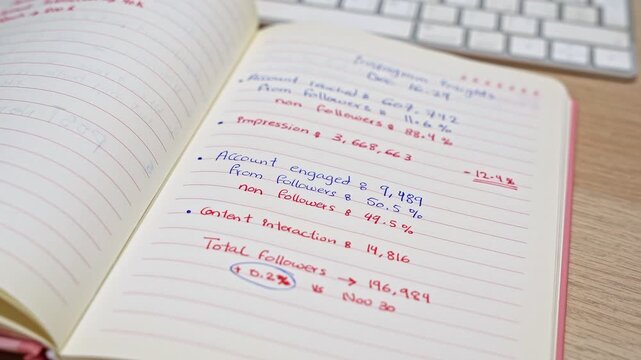 Instagram Insights
Dec 16-29
• Account reached & 607,742
From Followers & 11.6 %
non Followers & 88.4 %
• Impression & 3,668,663
- 12.4%
• Account engaged & 9,489
From Followers & 50.5 %
non Followers & 49.5 %
• Content interaction & 14,816
Total followers → 196,984
+ 0.2% vs Nov 30